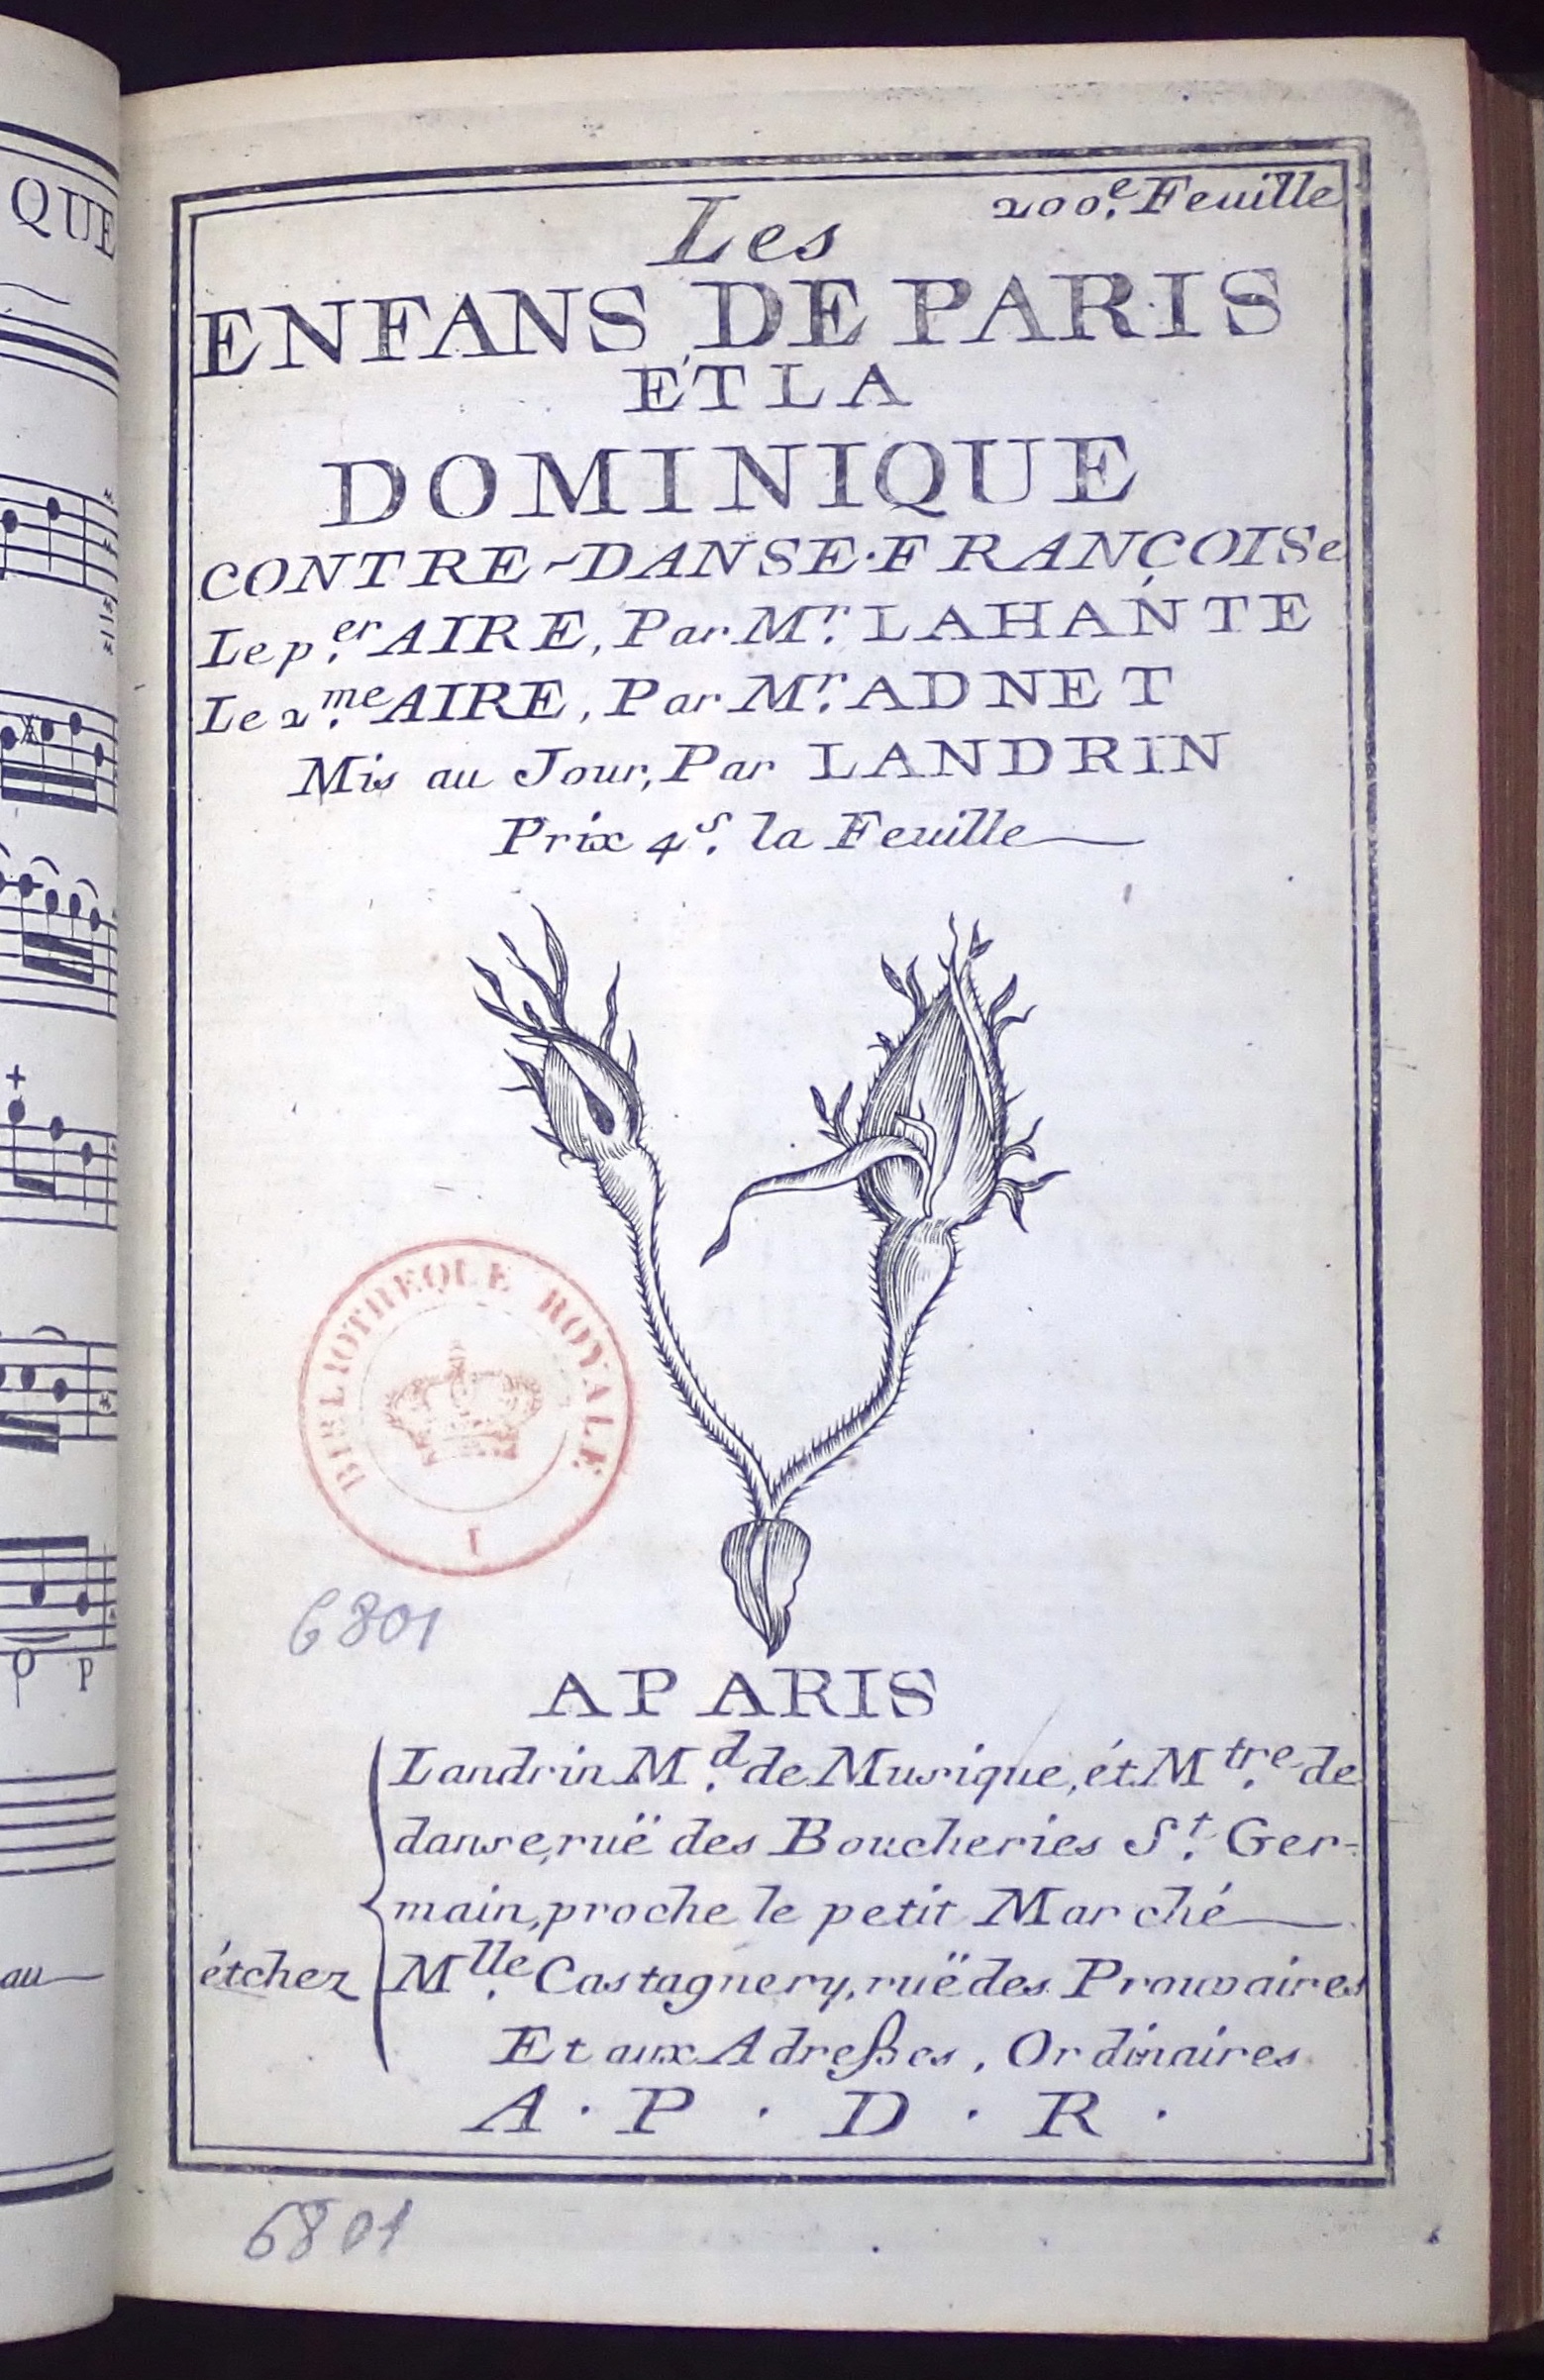 QUE
au
O P
200.e Feuille
Les
ENFANS DE PARIS
ÉT LA
DOMINIQUE
CONTRE-DANSE·FRANÇOISe
Le p.er AIRE, Par Mr. LAHANTE
Le 2.me AIRE, Par Mr. ADNET
Mis au Jour, Par LANDRIN
Prix 4s. la Feuille
BIBLIOTHEQUE ROYALE
I
6801
A PARIS
Landrin M.d de Musique, ét M.tre de
danse, ruë des Boucheries St. Ger-
main, proche le petit Marché
étchez Mlle. Castagnery, ruë des Prouvaires
Et aux Adreßes, Ordinaires
A · P · D · R ·
6801